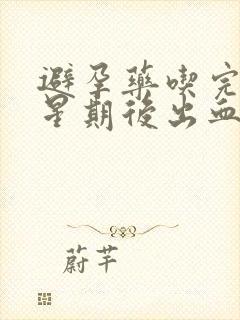 避孕藥喫完
星期後出血
蔚芊